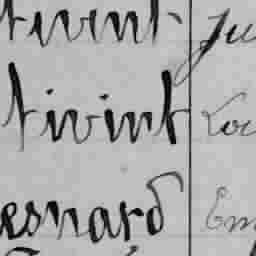 tivint Ju
tivint Lou
esnard Em